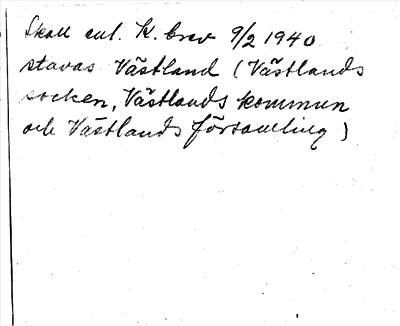 Skall enl. K. brev 9/2 1940
stavas Västland (Västlands
socken, Västlands kommun
och Västlands församling)